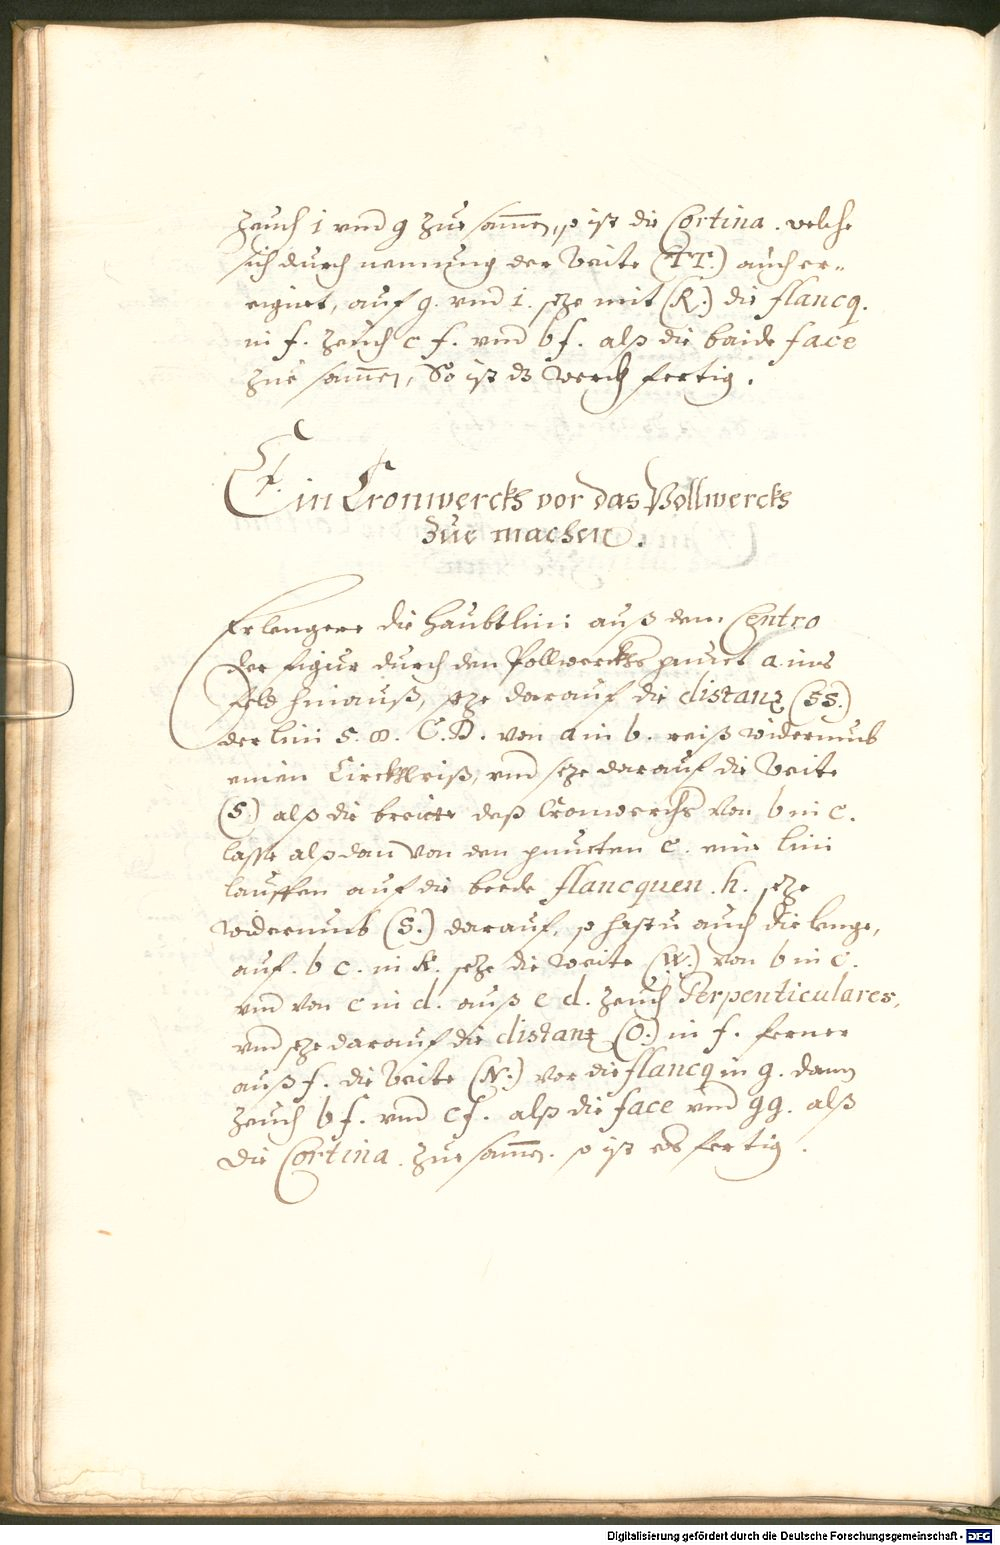 Zeuch i vnd g zue samen, so ist die Cortina. welche
sich durch nennung der Weite (TT.) auch er-
eignet, auf g. vnd i. seze mit (R.) die flancq.
in f. Zeuch c f. vnd b f. alß die baide face
zue samen, So ist dz Werckh fertig.
Ein Cronwercks vor das Pollwercks
zue machen.
Erlengere die Haubtlini auß dem Centro
der figur durch den Pollwerckhs punct a. ins
feld hinauß, seze darauf die distanz (SS.)
der lini 5. 8. C. D. von a in b. reiß widerumb
einen Circklriß, vnd seze darauf die Weite
(S.) alß die breitte deß Cronwerckhs von b in c.
lasse alßdan von den puncten c. eine lini
lauffen auf die beede flancquen. h. seze
widerumb (S.) darauf, so hastu auch die lenge,
auf. b c. in k. seze die Weite (W.) von b in e.
vnd von c in d. auß e d. Zeuch Perpenticulares,
vnd seze darauf die distanz (O.) in f. ferner
auß f. die Weite (N.) vor die flancq in g. dann
Zeuch b f. vnd c f. alß die face vnd g g. alß
die Cortina. zue samen. so ist es fertig.
Digitalisierung gefördert durch die Deutsche Forschungsgemeinschaft - DFG